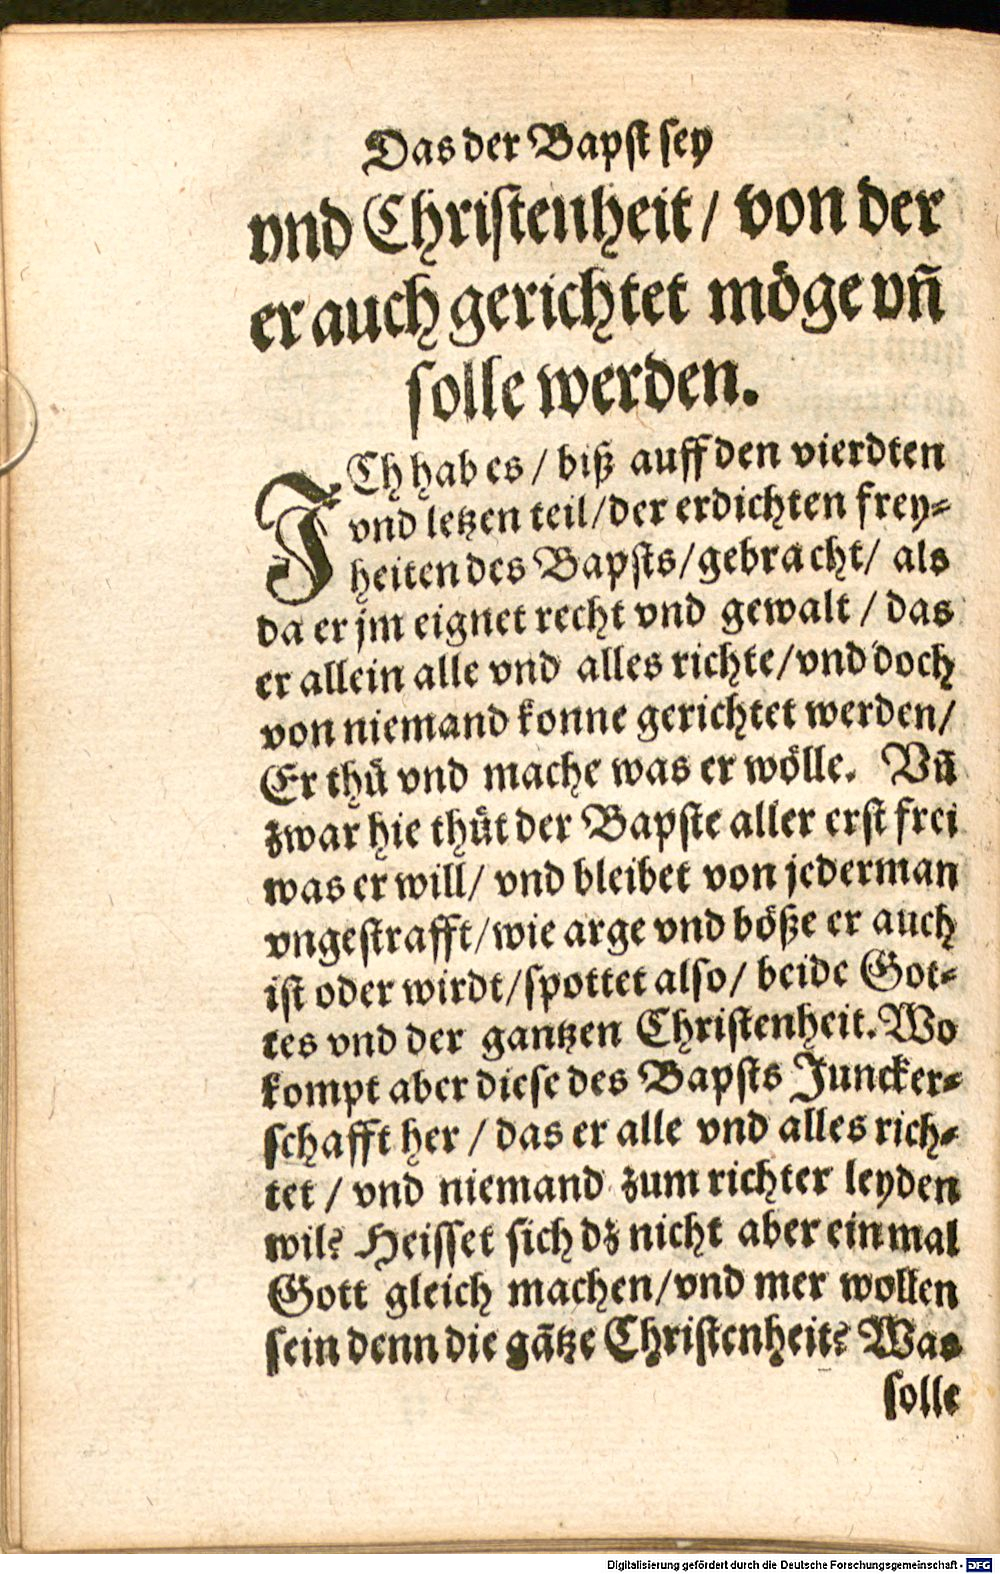 Das der Bapst sey
vnd Christenheit / von der
er auch gerichtet möge vn̄
solle werden.
ICh hab es / biß auff den vierdten
vnd letzen teil / der erdichten frey⸗
heiten des Bapsts / gebracht / als
da er jm eignet recht vnd gewalt / das
er allein alle vnd alles richte / vnd doch
von niemand konne gerichtet werden /
Er thuͤ vnd mache was er woͤlle. Vn̄
zwar hie thuͤt der Bapste aller erst frei
was er will / vnd bleibet von jederman
vngestrafft / wie arge vnd boͤße er auch
ist oder wirdt / spottet also / beide Got⸗
tes vnd der gantzen Christenheit. Wo
kompt aber diese des Bapsts Juncker⸗
schafft her / das er alle vnd alles rich⸗
tet / vnd niemand zum richter leyden
wil? Heisset sich dz nicht aber ein mal
Gott gleich machen / vnd mer wollen
sein denn die gātze Christenheit? Was
solle
Digitalisierung gefördert durch die Deutsche Forschungsgemeinschaft - DFG